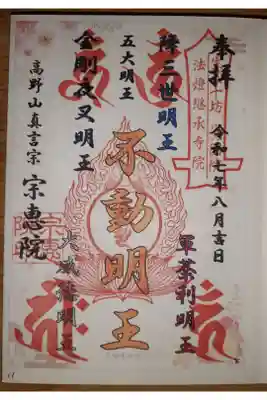 奉拝
令和七年八月吉日
法燈継承寺院
降三世明王
軍荼利明王
五大明王
不動明王
金剛夜叉明王
大威徳明王
高野山真言宗
宗恵院